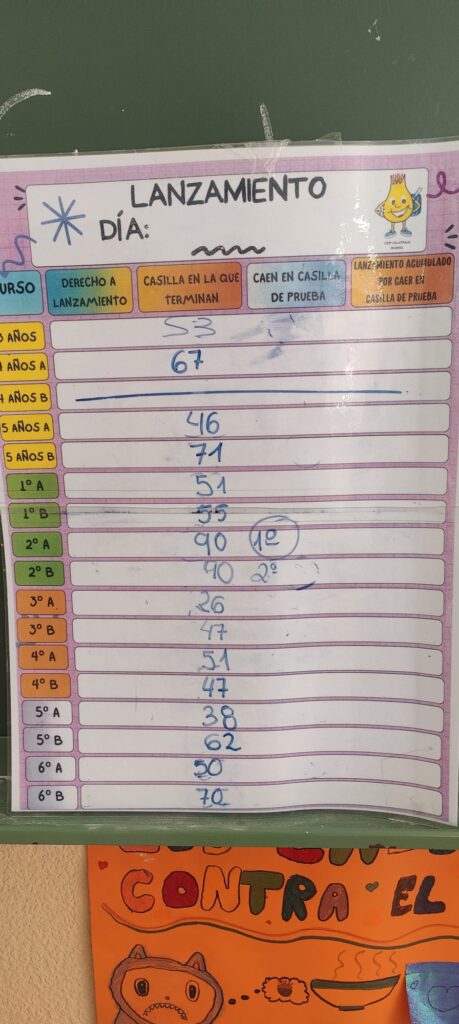 LANZAMIENTO
DÍA:
URSO DERECHO A LANZAMIENTO CASILLA EN LA QUE TERMINAN CAEN EN CASILLA DE PRUEBA LANZAMIENTO ACUMULADO POR CAER EN CASILLA DE PRUEBA
AÑOS 53
AÑOS A 67
AÑOS B
5 AÑOS A 46
5 AÑOS B 71
1º A 51
1º B 55
2º A 90 1º
2º B 90 2º
3º A 26
3º B 47
4º A 51
4º B 47
5º A 38
5º B 62
6º A 50
6º B 70
CONTRA EL